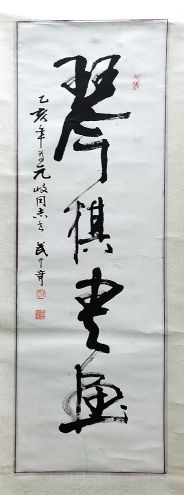 琴棋書画
乙亥年
元岐同志
武中奇